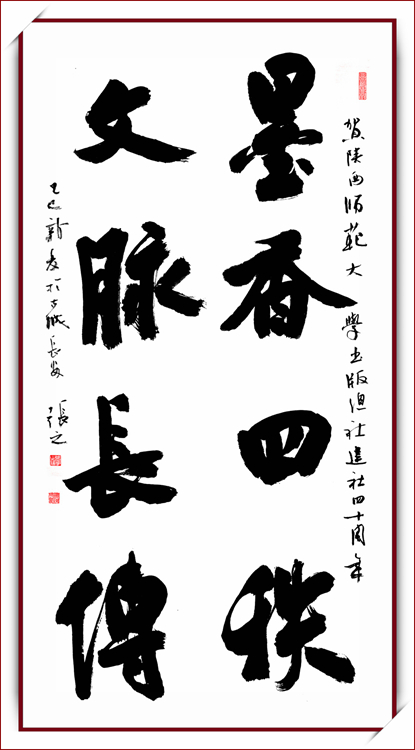 賀陕西師範大學出版總社建社四十周年
墨香四秩
文脈長傳
乙巳新夏於古城長安 張之